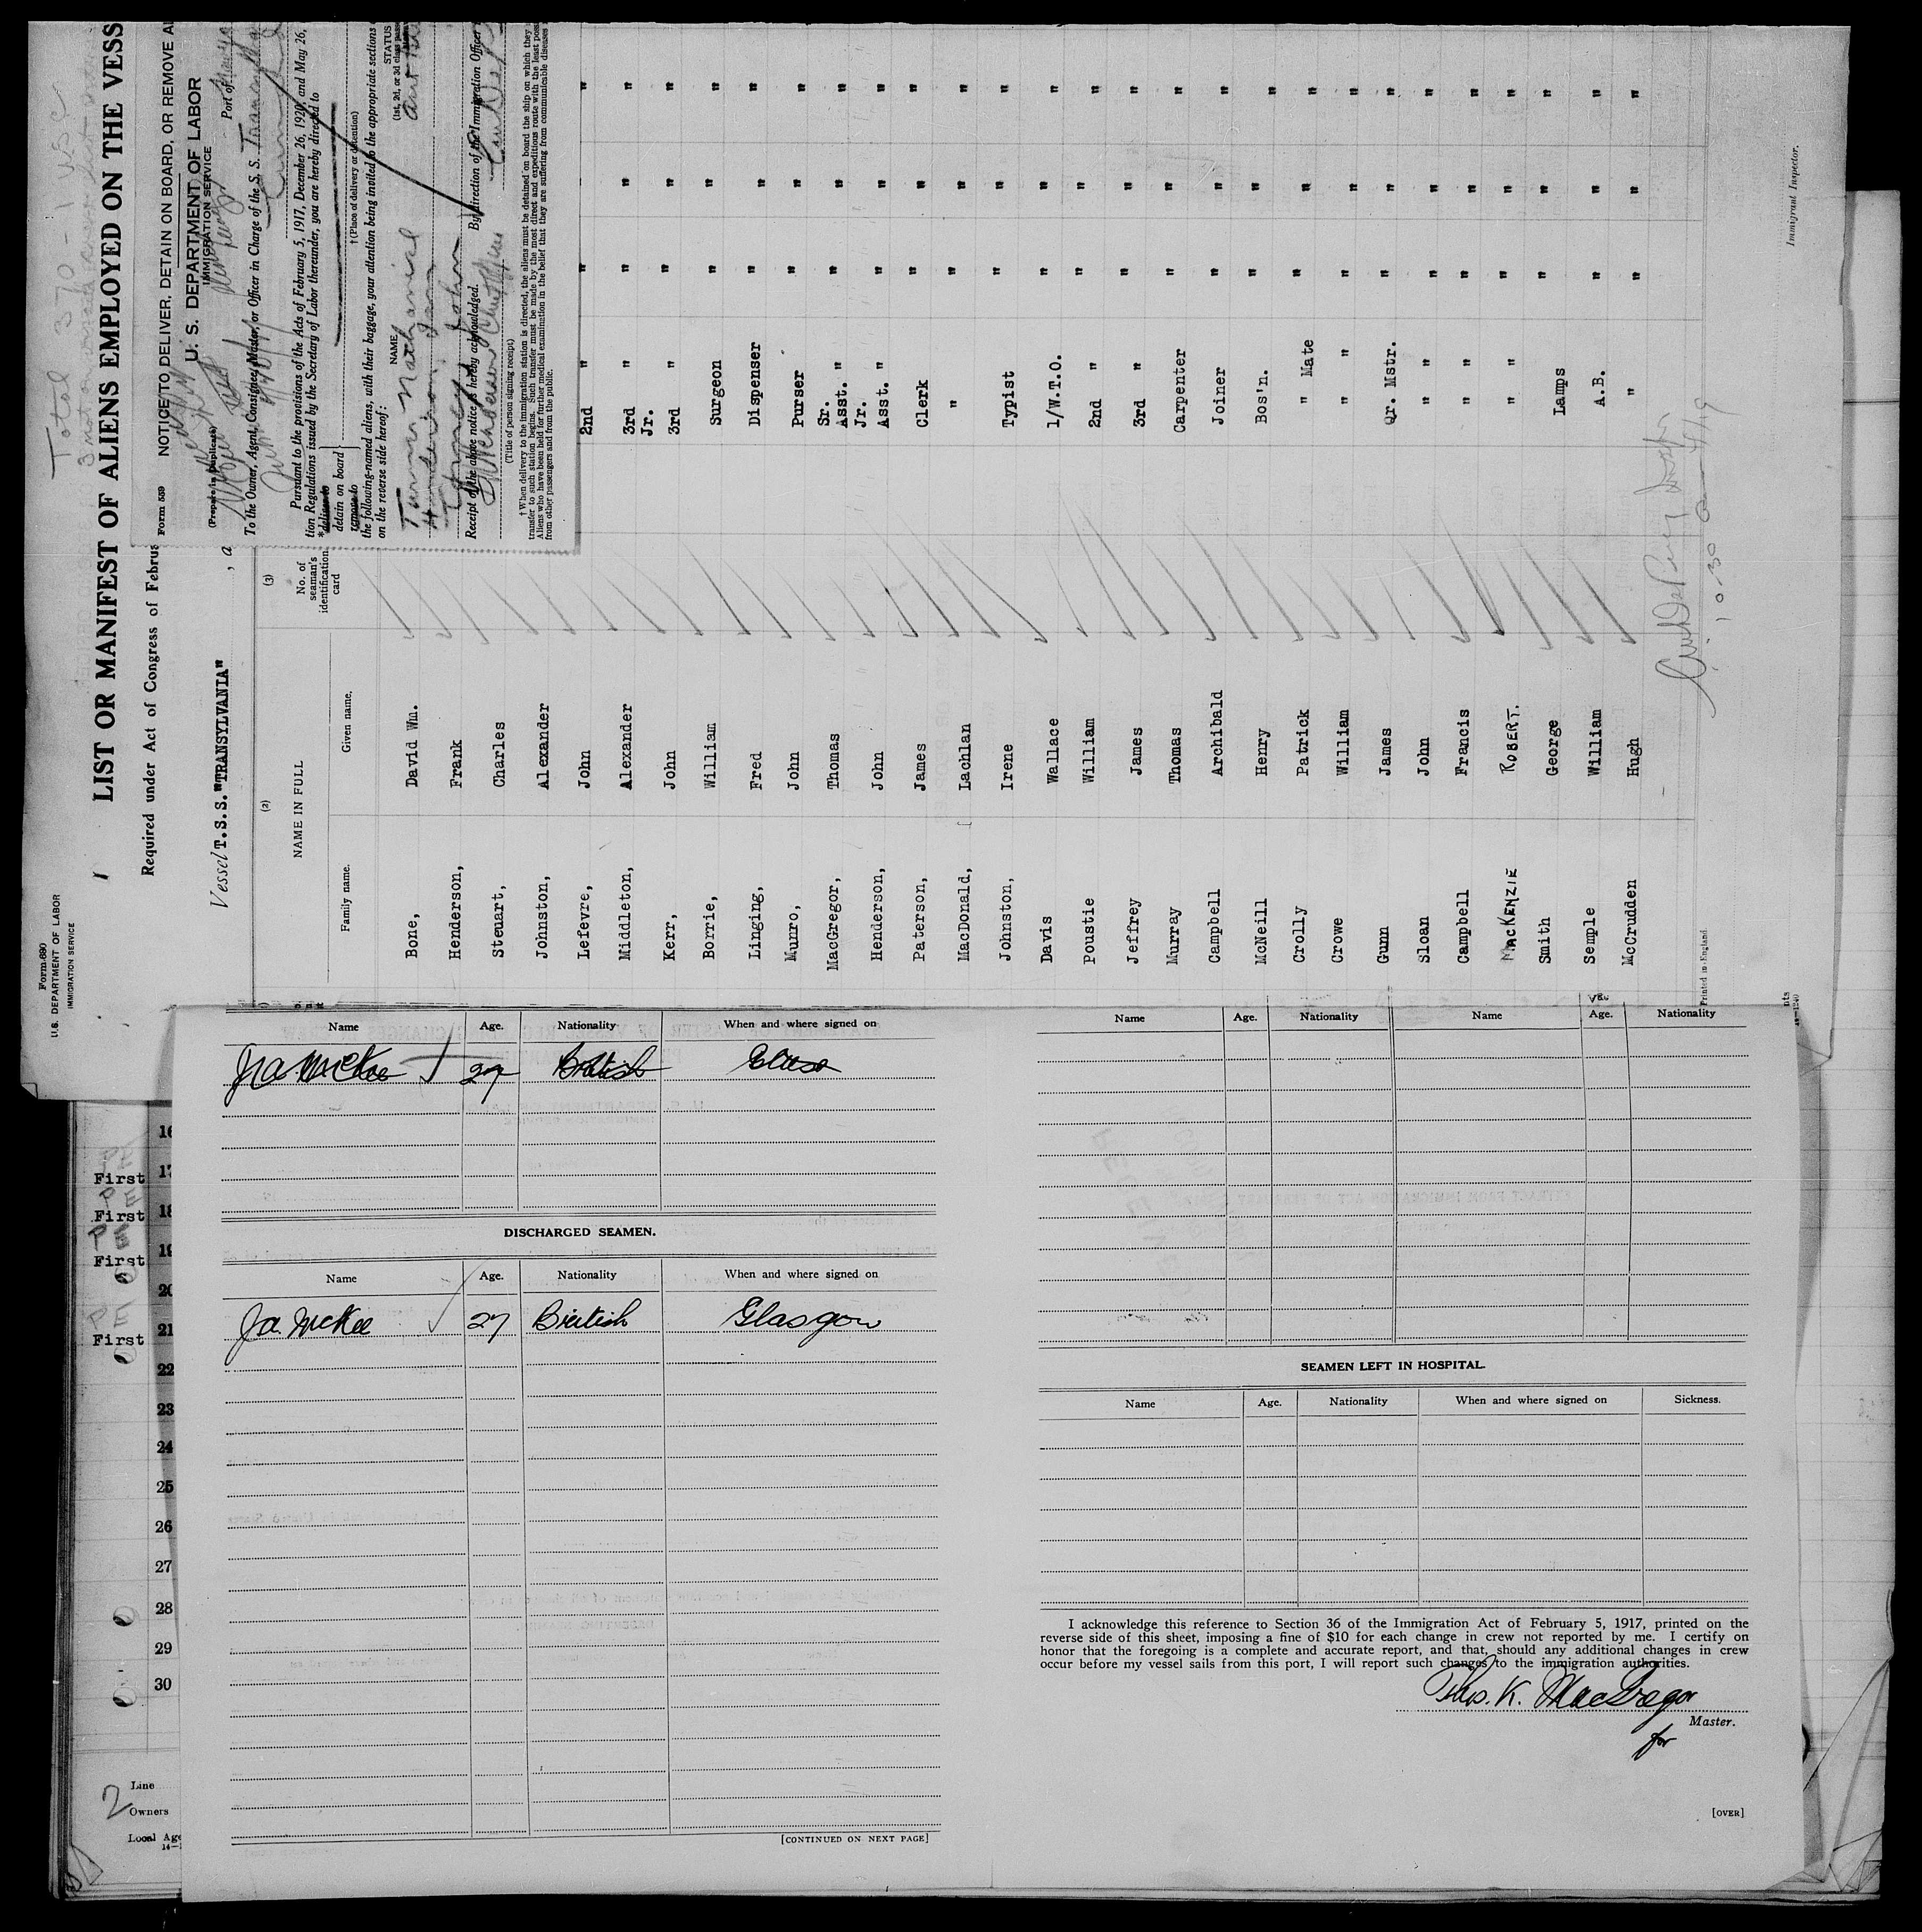 Form 680
U.S. DEPARTMENT OF LABOR
IMMIGRATION SERVICE
Total 370 - 1 USC
LIST OR MANIFEST OF ALIENS EMPLOYED ON THE VESS
Required under Act of Congress of Februa
Vessel T.S.S. "TRANSYLVANIA" , a
(2) (3)
NAME IN FULL
No. of seaman's identification card
Family name. Given name.
Bone, David Wm.
Henderson, Frank
Steuart, Charles
Johnston, Alexander
Lefevre, John 2nd " " "
Middleton, Alexander 3rd " " " "
Kerr, John Jr. 3rd " " "
Borrie, William Surgeon " " "
Linging, Fred Dispenser " " "
Munro, John Purser " " "
MacGregor, Thomas Sr. Asst. " " " "
Henderson, John Jr. Asst. " " " "
Paterson, James Clerk " " "
MacDonald, Lachlan " " " "
Johnston, Irene Typist " " "
Davis Wallace 1/W.T.O. " " "
Poustie William 2nd " " " "
Jeffrey James 3rd " " " "
Murray Thomas Carpenter " " "
Campbell Archibald Joiner " " "
McNeill Henry Bos'n. " " "
Crolly Patrick " Mate " " "
Crowe William " " " " "
Gunn James Qr. Mstr. " " "
Sloan John " " " " "
Campbell Francis " " " " "
MacKENZIE ROBERT. " " " " "
Smith George Lamps " " "
Semple William A.B. " " "
McCrudden Hugh " " " "
10-30
Immigrant Inspector.
Printed in England.
Form 559
NOTICE TO DELIVER, DETAIN ON BOARD, OR REMOVE AL
U. S. DEPARTMENT OF LABOR
IMMIGRATION SERVICE
(Prepare in Duplicate)
Port of
To the Owner, Agent, Consignee, Master, or Officer in Charge of the S. S. Transylvania
Pursuant to the provisions of the Acts of February 5, 1917, December 26, 1920, and May 26,
tion Regulations issued by the Secretary of Labor thereunder, you are hereby directed to
*deliver to
detain on board
remove to
†(Place of delivery or detention)
the following-named aliens, with their baggage, your attention being invited to the appropriate sections
on the reverse side hereof:
NAME STATUS
(1st, 2d, or 3d class pass
Turner Nathanial
Henderson
John
Receipt of the above notice is hereby acknowledged. By direction of the Immigration Officer
(Title of person signing receipt)
† When delivery to the immigration station is directed, the aliens must be detained on board the ship on which they
transfer to such station begins. Such transfer must be made by the most direct and expeditious route with the least poss
Aliens who have been held for further medical examination in the belief that they are suffering from communicable diseases
from other passengers and from the public.
16
First 17
First 18
First 19
20
First 21
22
23
24
25
26
27
28
29
30
2
Line
Owners
Local Age
Name Age. Nationality When and where signed on
Jja McKee 27 British
DISCHARGED SEAMEN.
Name Age. Nationality When and where signed on
Ja. McKee 27 British Glasgow
[CONTINUED ON NEXT PAGE]
Name Age. Nationality Name Age. Nationality
SEAMEN LEFT IN HOSPITAL.
Name Age. Nationality When and where signed on Sickness.
I acknowledge this reference to Section 36 of the Immigration Act of February 5, 1917, printed on the
reverse side of this sheet, imposing a fine of $10 for each change in crew not reported by me. I certify on
honor that the foregoing is a complete and accurate report, and that, should any additional changes in crew
occur before my vessel sails from this port, I will report such changes to the immigration authorities.
Thos. K. MacGregor
Master.
for
[OVER]